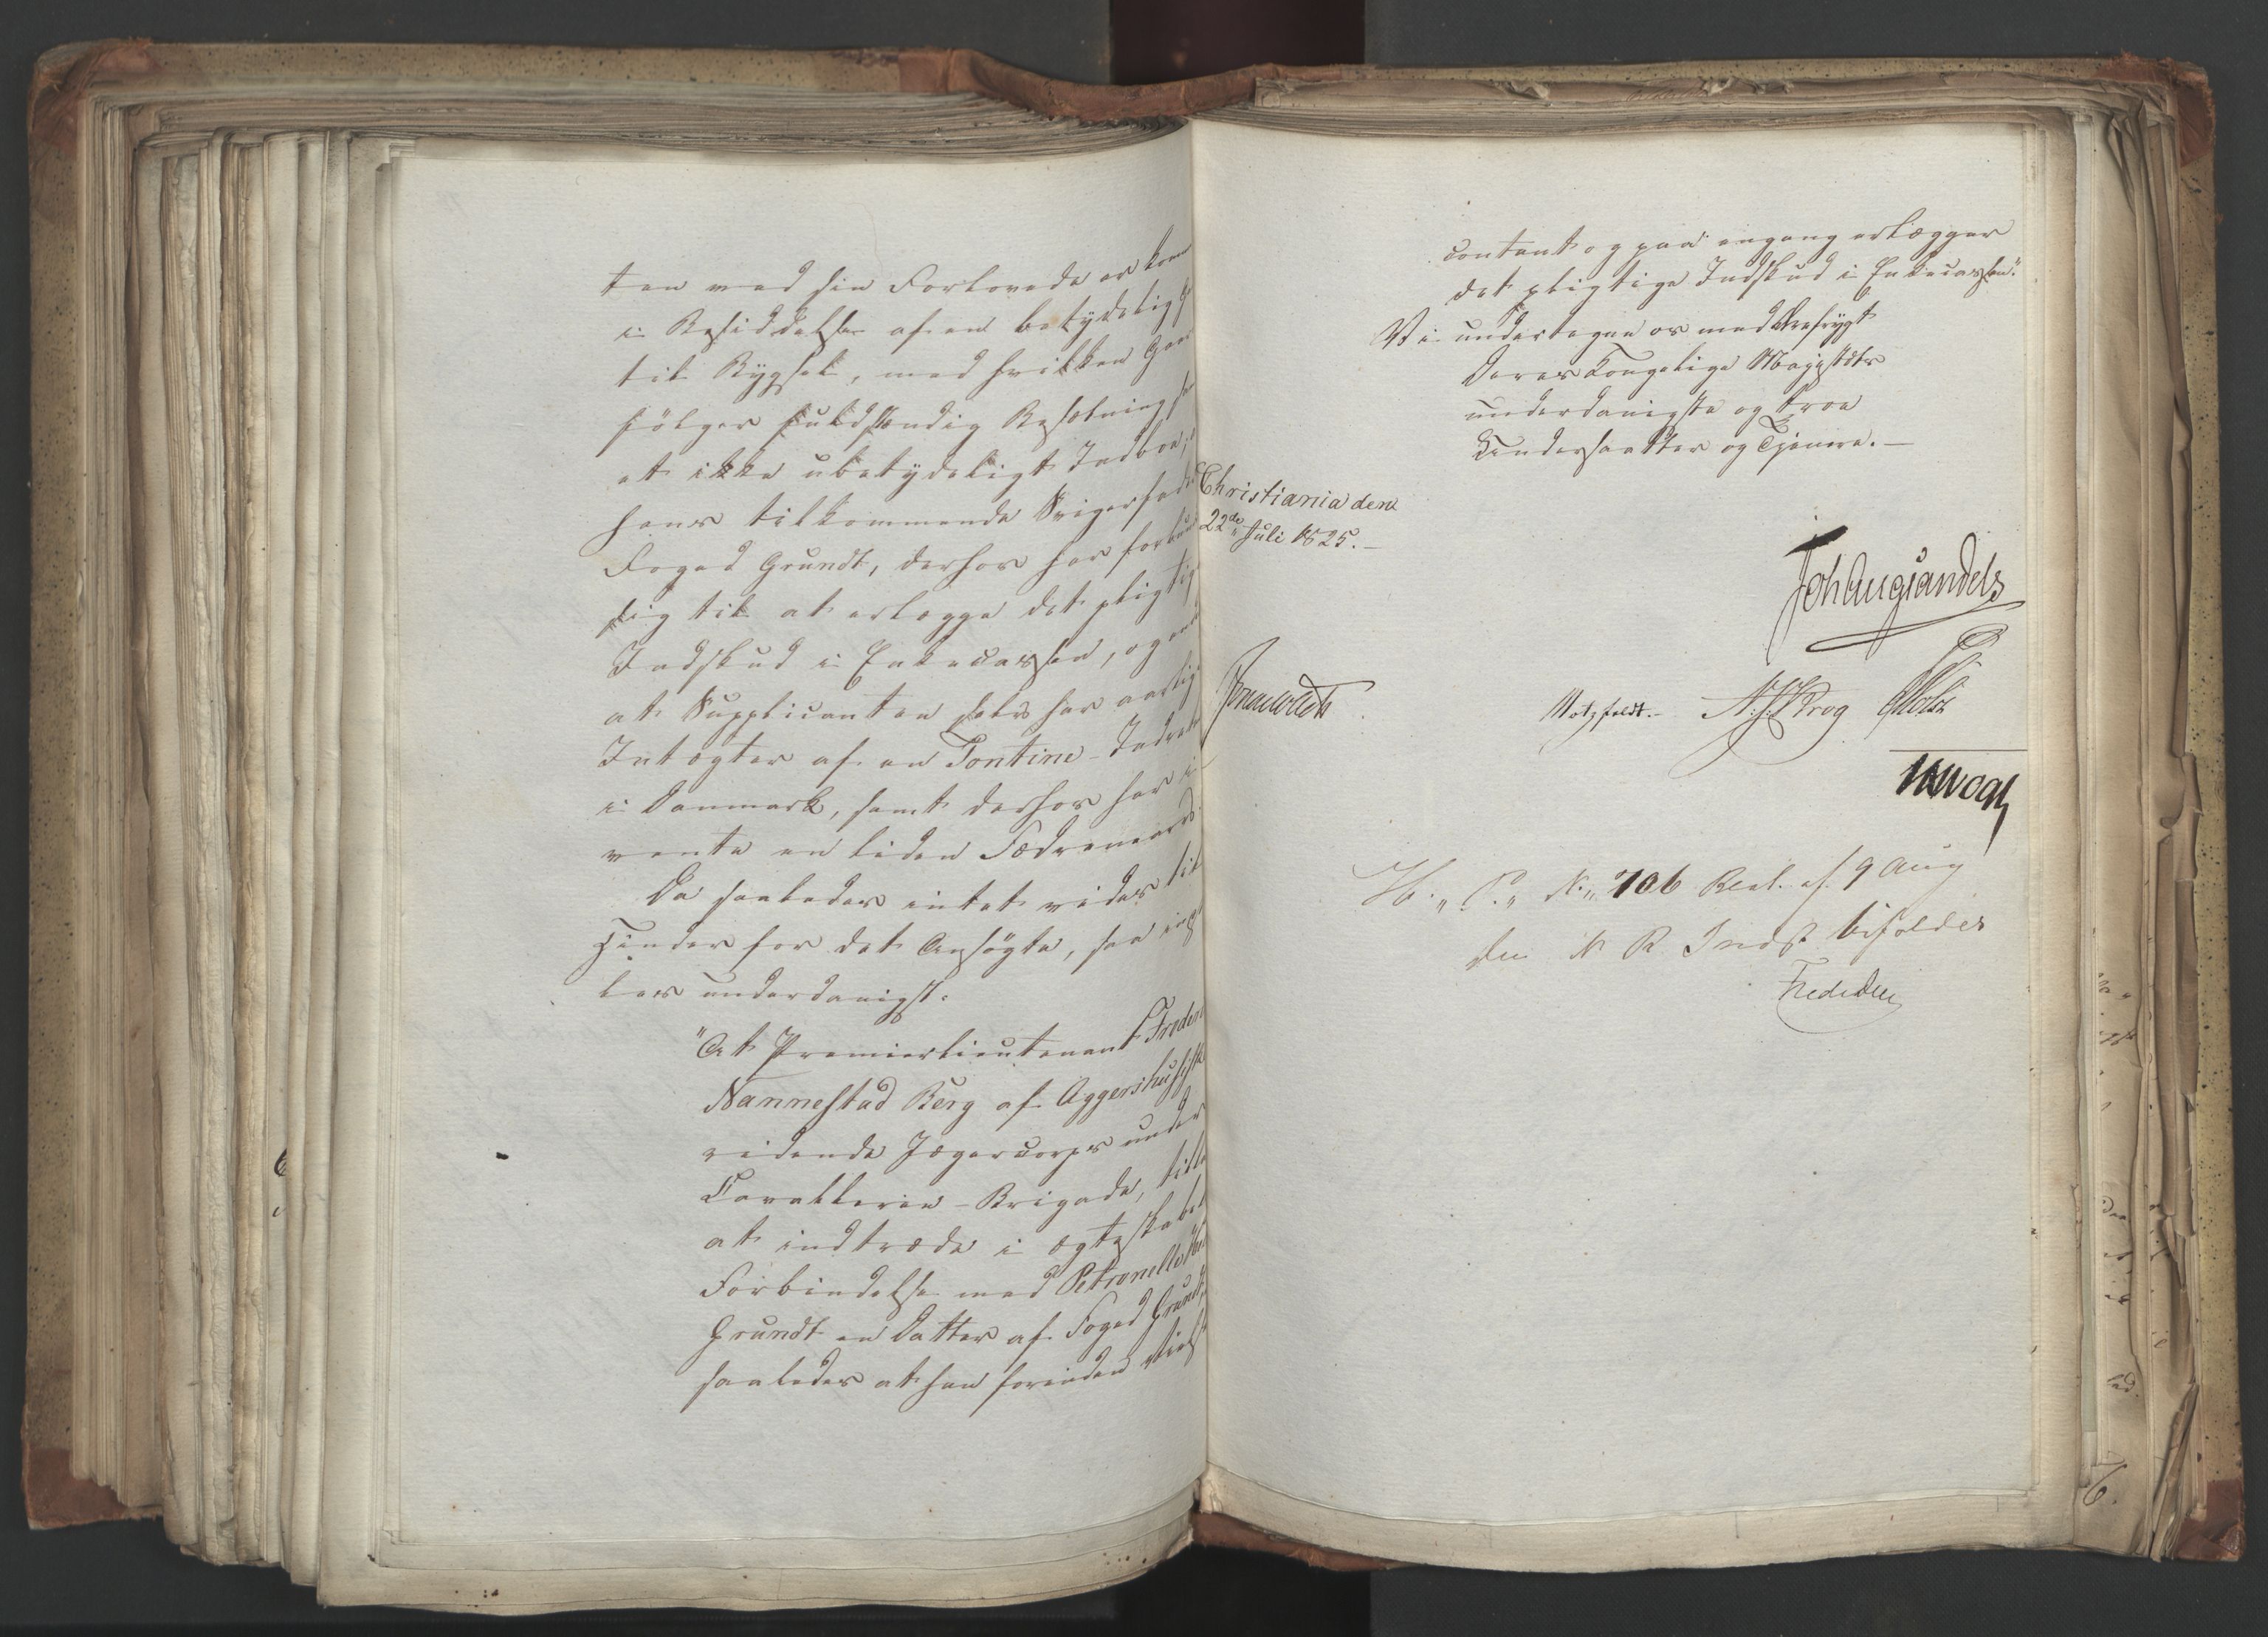 ten med sin Forlovede er kom
i Besiddelse af en betydelig G
til Bygsel, med hvilken Gaar
følger fuldstændig Besætning
et ikke ubetydeligt Indboe,
hans tilkommende Svigerfader
Foged Grundt, derhos har forbun
sig til at erlægge det pligtig
Indskud i Enkecassen, og
at Supplicanten selv har aarlig
Indtægter af en Tontine-Indret
i Danmark, samt derhos har i
vente en liden Fædrenearv
Da saaledes intet vides til
Hinder for det Ansøgte, saa
les underdanigst:
"At Premierlieutenant Freder
Nannestad Berg af Aggershusiske
ridende Jægercorps under
Cavallerie-Brigade, till
at indtræde i ægteskabel
Forbindelse med Petronelle
Grundt en Datter af Foged Grundt,
saaledes at han forinden Viels
contant og paa engang erlægger
det pligtige Indskud i Enkecassen".
Vi undertegne os med Ærefrygt
Deres Kongelige Majestæts
underdanigste og troe
Undersaatter og Tjenere. —
Christiania den
22de Juli 1825. —
Joh Aug Sandels
Motzfeldt. N: J: Krog
No 706 Resol. af 9 Aug
Den N R Indst bifaldes